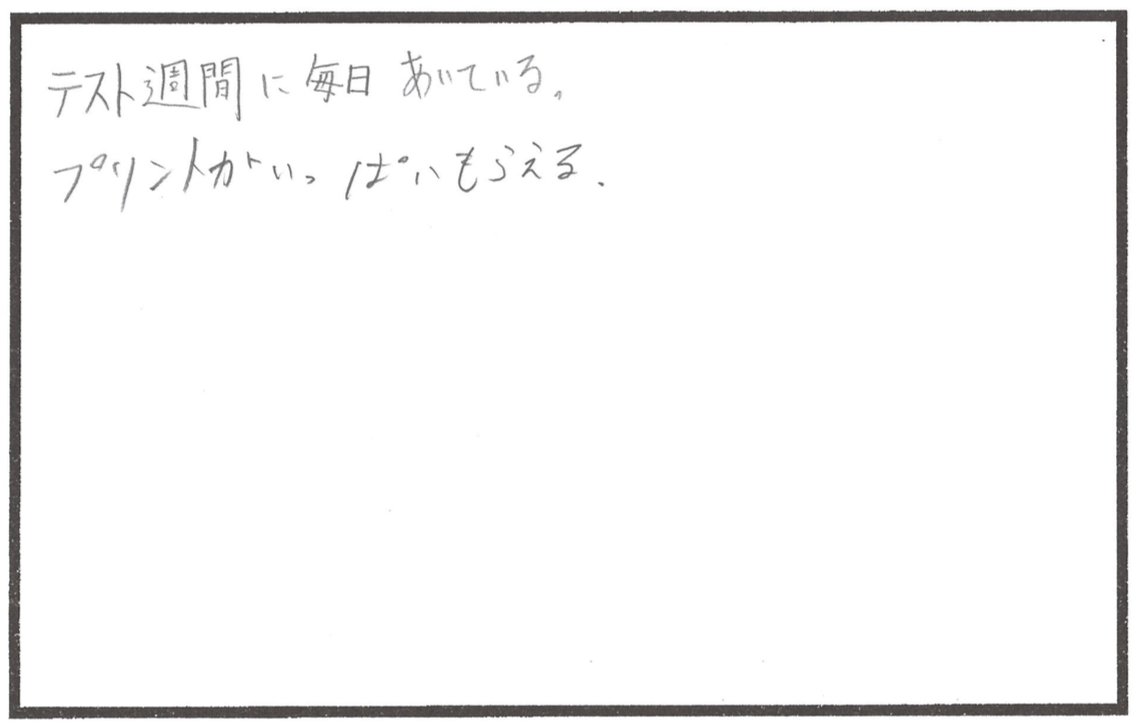 テスト週間に毎日あいている。
プリントがいっぱいもらえる。